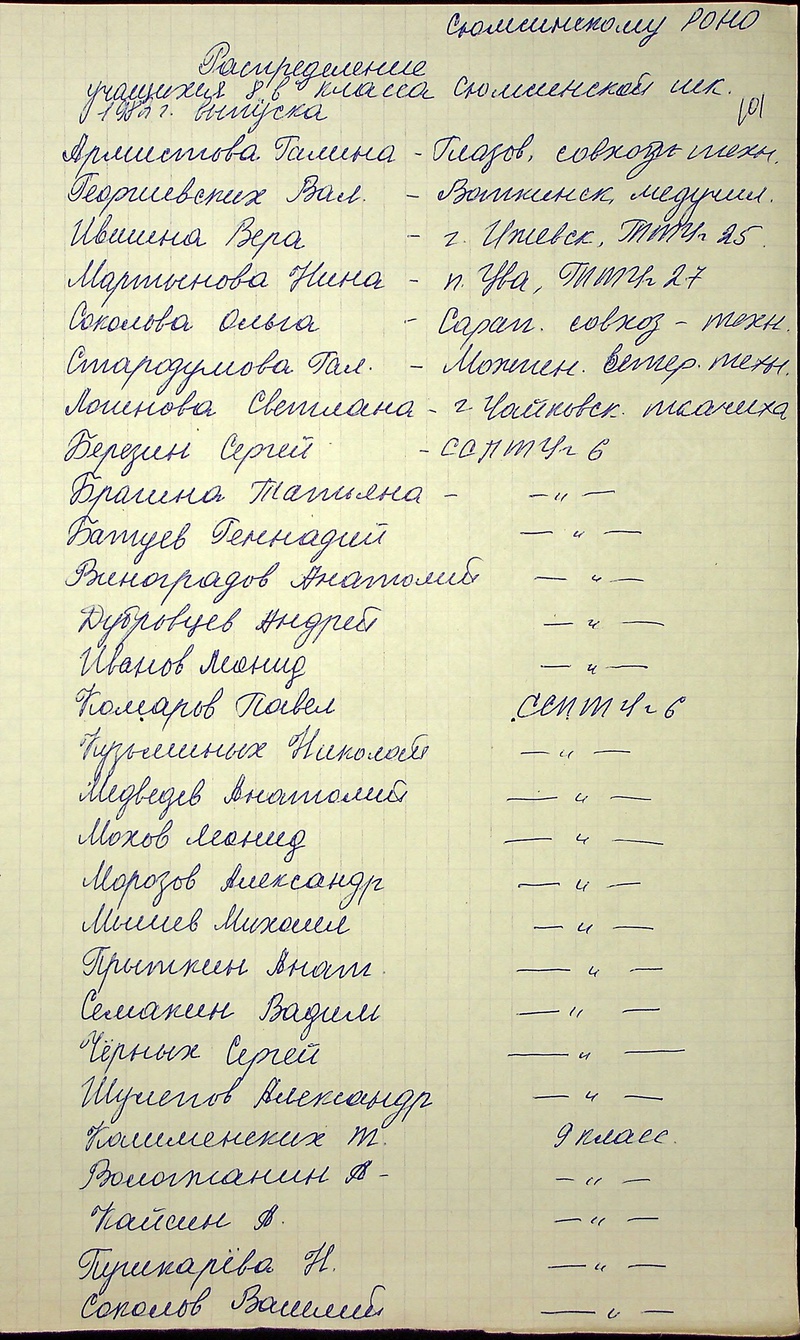 Сюмсинскому РОНО
Распределение
учащихся 8 в класса Сюмсинской шк.
1982 г. выпуска
101
Армистова Галина - Глазов, совхоз техн.
Георгиевских Вал. - Воткинск, медучил.
Ившина Вера - г. Ижевск, ТПТУ 25
Мартынова Нина - п. Ува, ТПТУ 27
Соколова Ольга - Сарап. совхоз - техн.
Стародумова Гал. - Можгин. ветер. техн.
Логинова Светлана - г Чайковск. ткачиха
Березин Сергей - ССПТУ 6
Брагина Татьяна - — " —
Батуев Геннадий — " —
Виноградов Анатолий — " —
Дубровцев Андрей — " —
Иванов Леонид — " —
Комаров Павел ССПТУ 6
Кузьминых Николай — " —
Медведев Анатолий — " —
Мохов Леонид — " —
Морозов Александр — " —
Мышев Михаил — " —
Прыткин Анат. — " —
Семакин Вадим — " —
Чёрных Сергей — " —
Шулепов Александр — " —
Калименских Т. 9 класс.
Вологжанин А - — " —
Кайсин А. — " —
Пушкарёва Н. — " —
Соколов Василий — " —